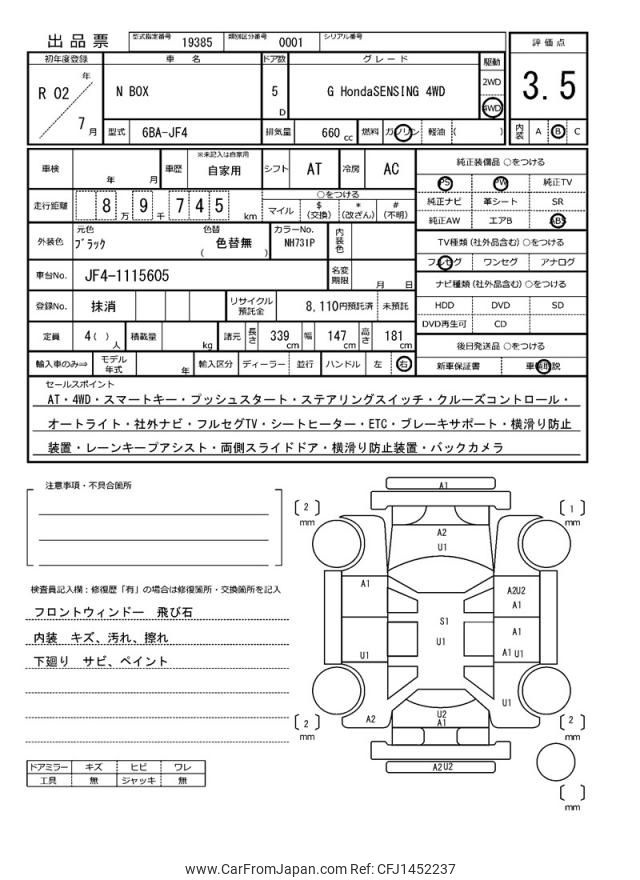 出品票 型式指定番号 19385 類別区分番号 0001 シリアル番号
評価点
3.5
内装 A B C
初年度登録 車名 ドア数 グレード 駆動
R 02 年 7 月
N BOX 5 D G HondaSENSING 4WD 2WD 4WD
型式 6BA-JF4 排気量 660 cc 燃料 ガソリン 軽油 ( )
車検 年 月 車歴 ※未記入は自家用 自家用 シフト AT 冷房 AC
走行距離 8 万 9 千 7 4 5 km
○をつける
マイル $(交換) *(改ざん) #(不明)
外装色 元色 ブラック 色替 ( 色替無 ) カラーNo. NH731P 内装色
車台No. JF4-1115605 名変期限 月 日
登録No. 抹消 リサイクル預託金 8,110円預託済 未預託
定員 4( ) 人 積載量 kg 諸元 長さ 339 cm 幅 147 cm 高さ 181 cm
輸入車のみ⇒ モデル年式 年 輸入区分 ディーラー 並行 ハンドル 左 右
純正装備品 ○をつける
PS PW 純正TV
純正ナビ 革シート SR
純正AW エアB ABS
TV種類(社外品含む) ○をつける
フルセグ ワンセグ アナログ
ナビ種類(社外品含む) ○をつける
HDD DVD SD
DVD再生可 CD
後日発送品 ○をつける
新車保証書 車輌取説
セールスポイント
AT・4WD・スマートキー・プッシュスタート・ステアリングスイッチ・クルーズコントロール・
オートライト・社外ナビ・フルセグTV・シートヒーター・ETC・ブレーキサポート・横滑り防止
装置・レーンキープアシスト・両側スライドドア・横滑り防止装置・バックカメラ
注意事項・不具合箇所
検査員記入欄：修復歴「有」の場合は修復箇所・交換箇所を記入
フロントウィンドー 飛び石
内装 キズ、汚れ、擦れ
下廻り サビ、ペイント
ドアミラー キズ ヒビ ワレ
工具 無 ジャッキ 無
A1
[ 2 ] mm
[ 1 ] mm
A2
U1
A1
A2U2
A1
S1
U1
A1
A1 U1
U1
U1
A2
U2
A1
[ 2 ] mm
[ 2 ] mm
A2U2
[ ] mm
www.CarFromJapan.com Ref: CFJ1452237